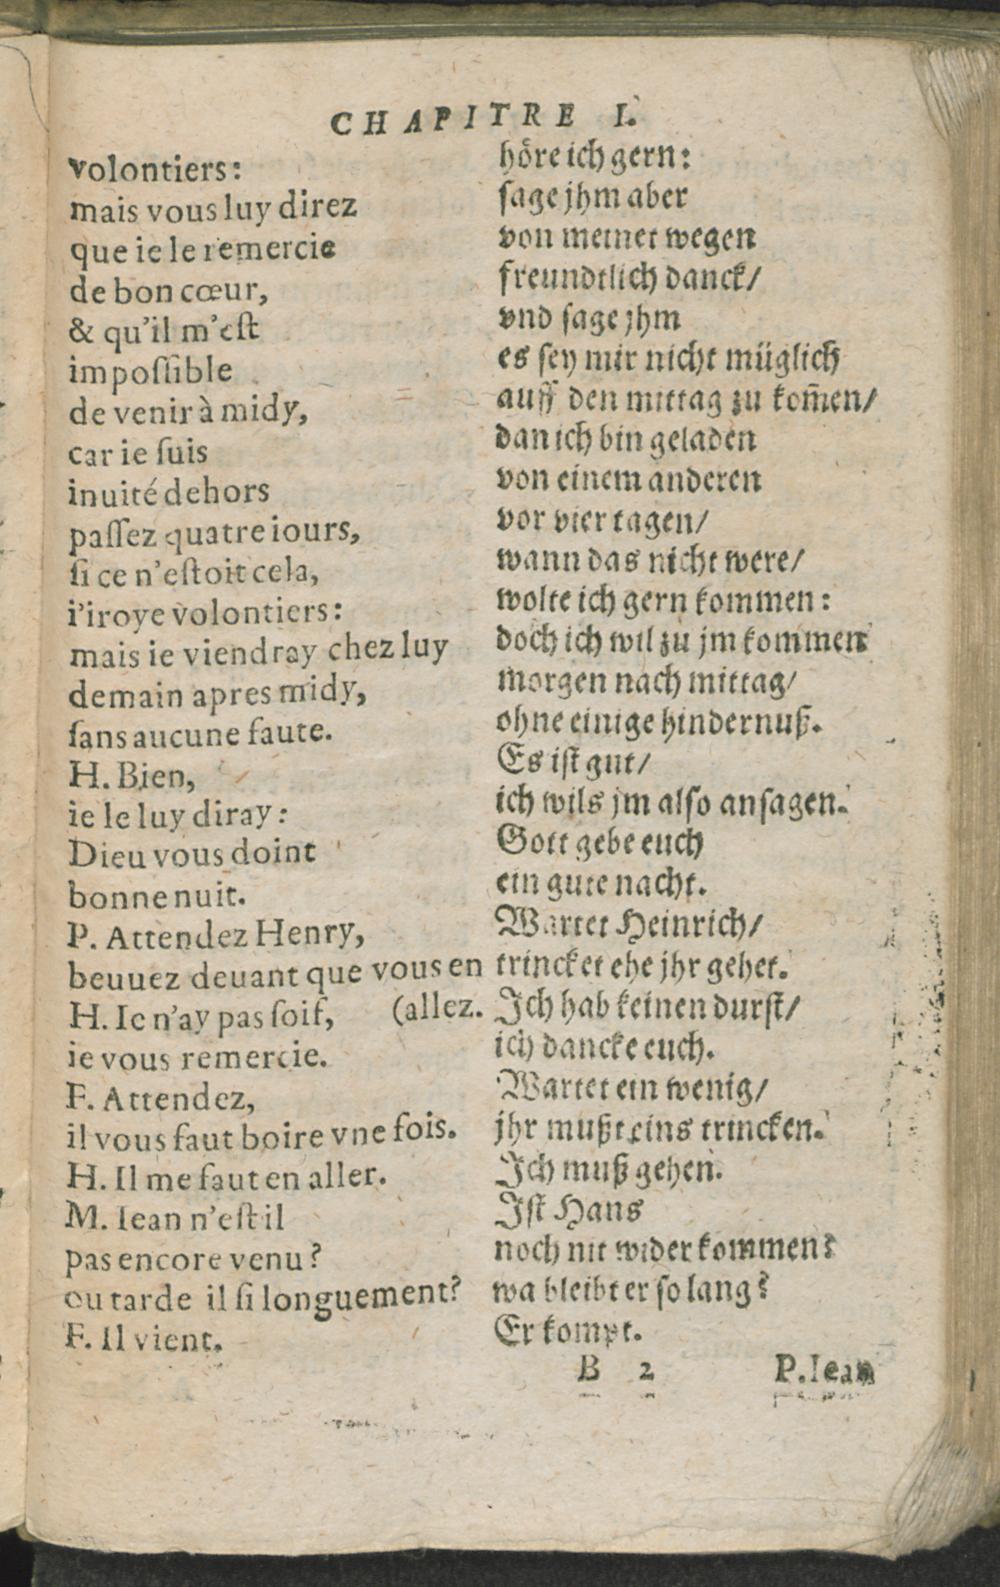 CHAPITRE I.
volontiers:
mais vous luy direz
que ie le remercie
de bon cœur,
& qu'il m'eſt
impoſſible
de venir à midy,
car ie ſuis
inuité dehors
paſſez quatre iours,
ſi ce n'eſtoit cela,
i'iroye volontiers:
mais ie viendray chez luy
demain apres midy,
ſans aucune faute.
H. Bien,
ie le luy diray:
Dieu vous doint
bonne nuit.
P. Attendez Henry,
beuuez deuant que vous en
H. Ie n'ay pas ſoif, (allez.
ie vous remercie.
F. Attendez,
il vous faut boire vne fois.
H. Il me faut en aller.
M. Iean n'eſt il
pas encore venu?
ou tarde il ſi longuement?
F. Il vient.
höre ich gern:
ſage jhm aber
von meinet wegen
freundtlich danck/
vnd ſage jhm
es ſey mir nicht müglich
auff den mittag zu kom̃en/
dan ich bin geladen
von einem anderen
vor vier tagen/
wann das nicht were/
wolte ich gern kommen:
doch ich wil zu jm kommen
morgen nach mittag/
ohne einige hindernuß.
Es iſt gut/
ich wils jm alſo anſagen.
Gott gebe euch
ein gute nacht.
Wartet Heinrich/
trincket ehe jhr gehet.
Ich hab keinen durſt/
ich dancke euch.
Wartet ein wenig/
jhr mußt eins trincken.
Ich muß gehen.
Iſt Hans
noch nit wider kommen?
wa bleibt er ſo lang?
Er kompt.
B 2 P. Iean